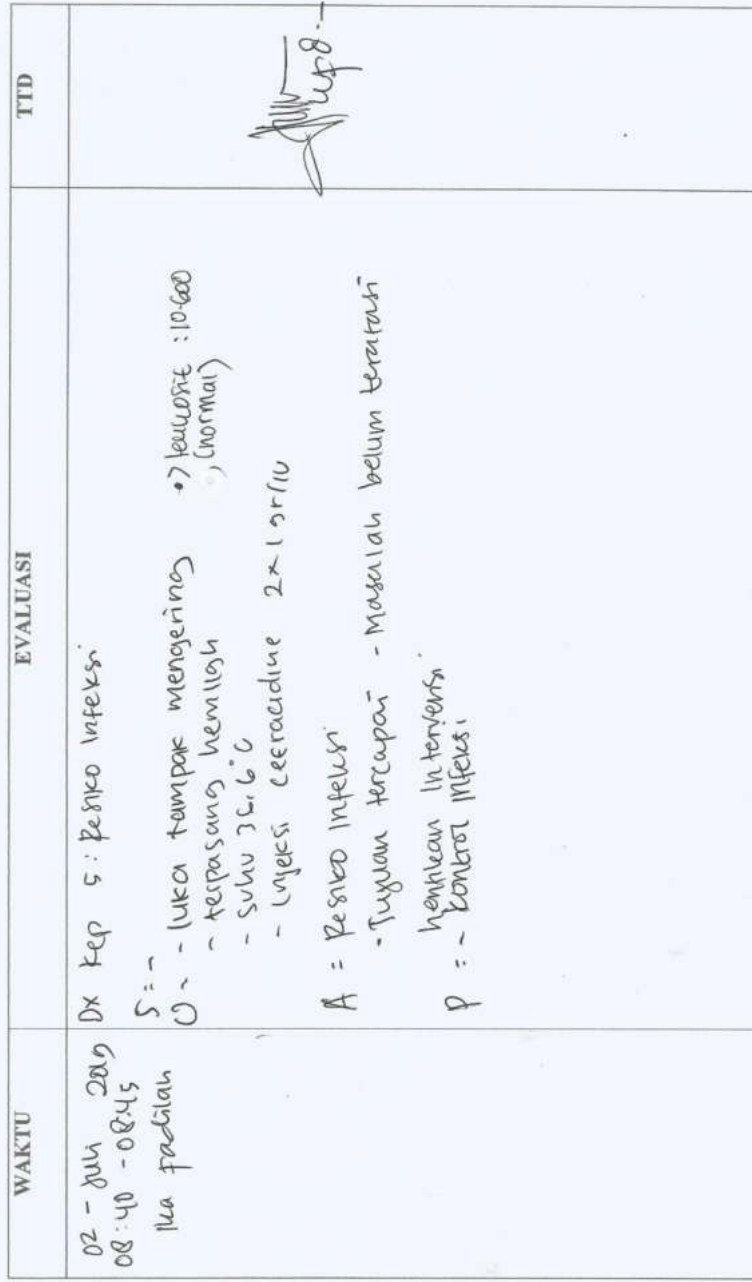 WAKTU
EVALUASI
TTD
02 - Juli 2019
08:40 - 08:45
Ika Fadilah
Dx Kep 5 : Resiko Infeksi
S = -
O - - luka tampak mengering
- terpasang hemiligh
- suhu 36,6°C
- injeksi cefracidine 2x1 gr/iv
•) leukosit : 10.600
(normal)
A = Resiko Infeksi
- Tujuan tercapai - Masalah belum teratasi
hentikan intervensi
P = - kontrol infeksi